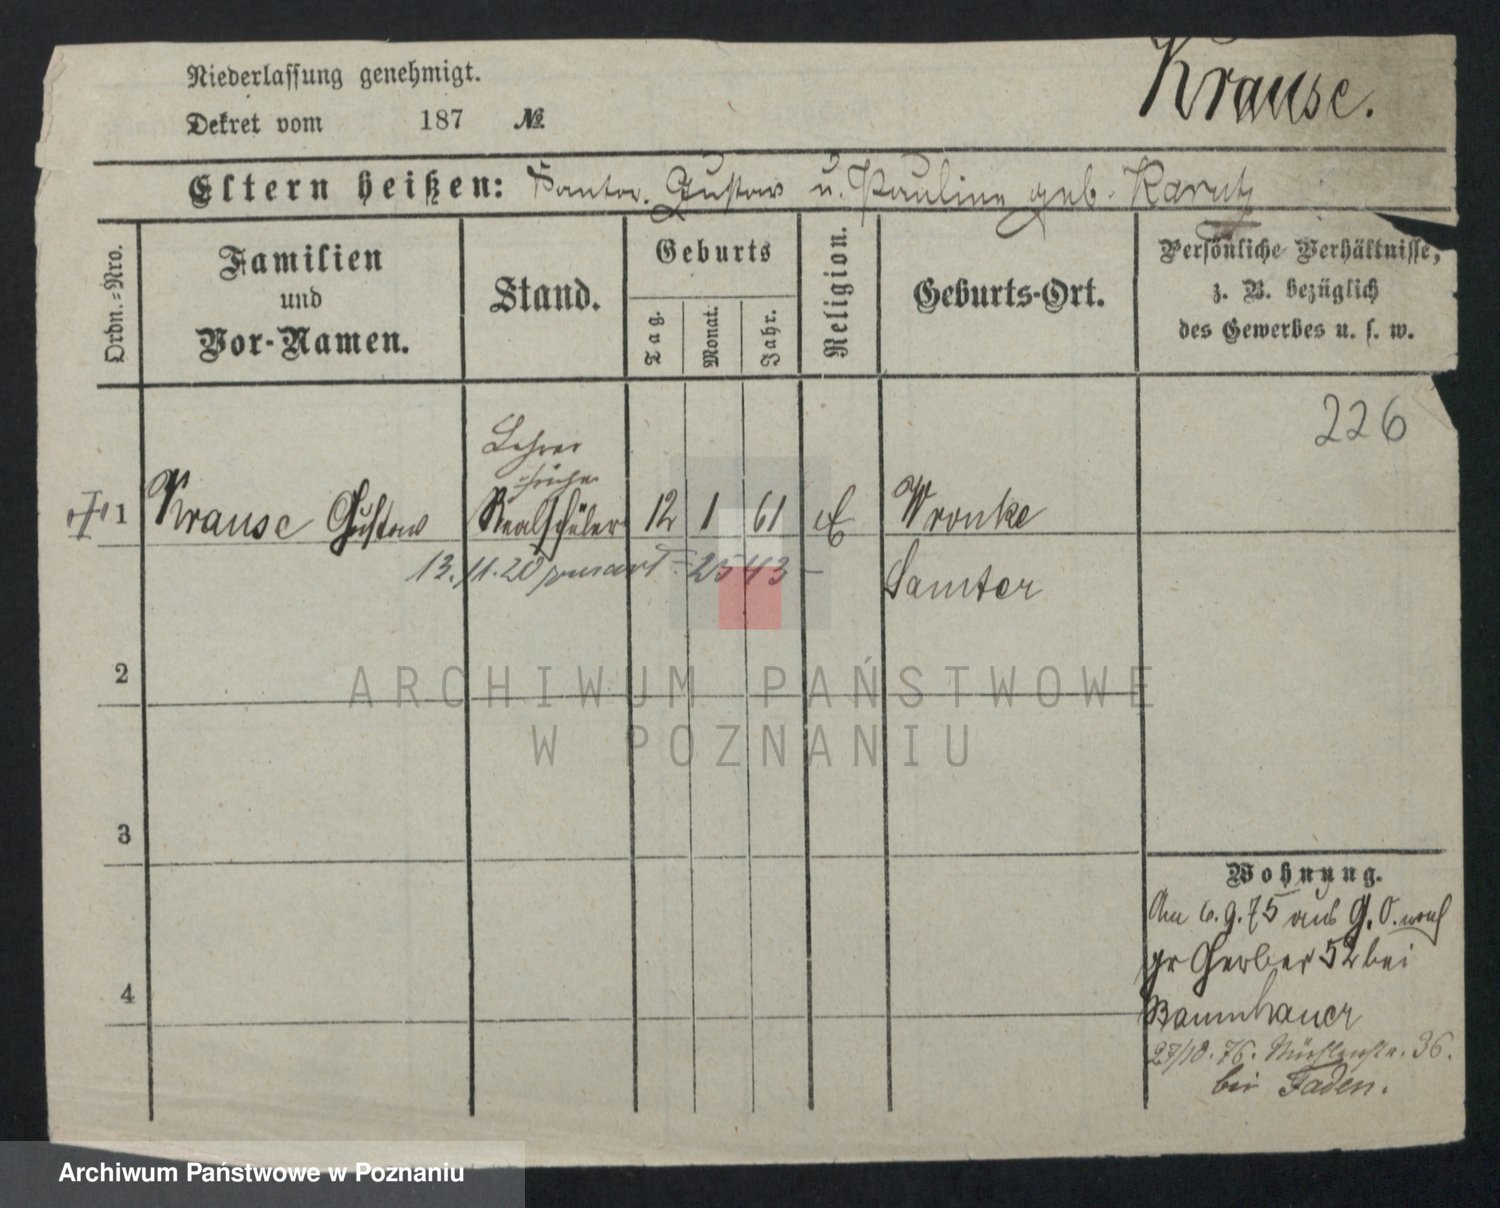 Krause.
Niederlassung genehmigt.
Dekret vom 187 №
Eltern heißen: Kantor. Gustav u. Pauline geb. Karutz
Ordn.-Nro.
Familien
und
Vor-Namen.
Stand.
Geburts
Tag.
Monat.
Jahr.
Religion.
Geburts-Ort.
Persönliche Verhältnisse,
z. B. bezüglich
des Gewerbes u. s. w.
226
Lehrer
früher
1 Krause Gustav Realschüler 12 1 61 E Wronke
13.11.20 2543 Samter
2
3
4
Wohnung.
Am 6.9.75 aus G.O. nach
gr Gerber 52 bei
Baumhauer
27/10.76. 36.
bei Faden.
ARCHIWUM PAŃSTWOWE
W POZNANIU
Archiwum Państwowe w Poznaniu